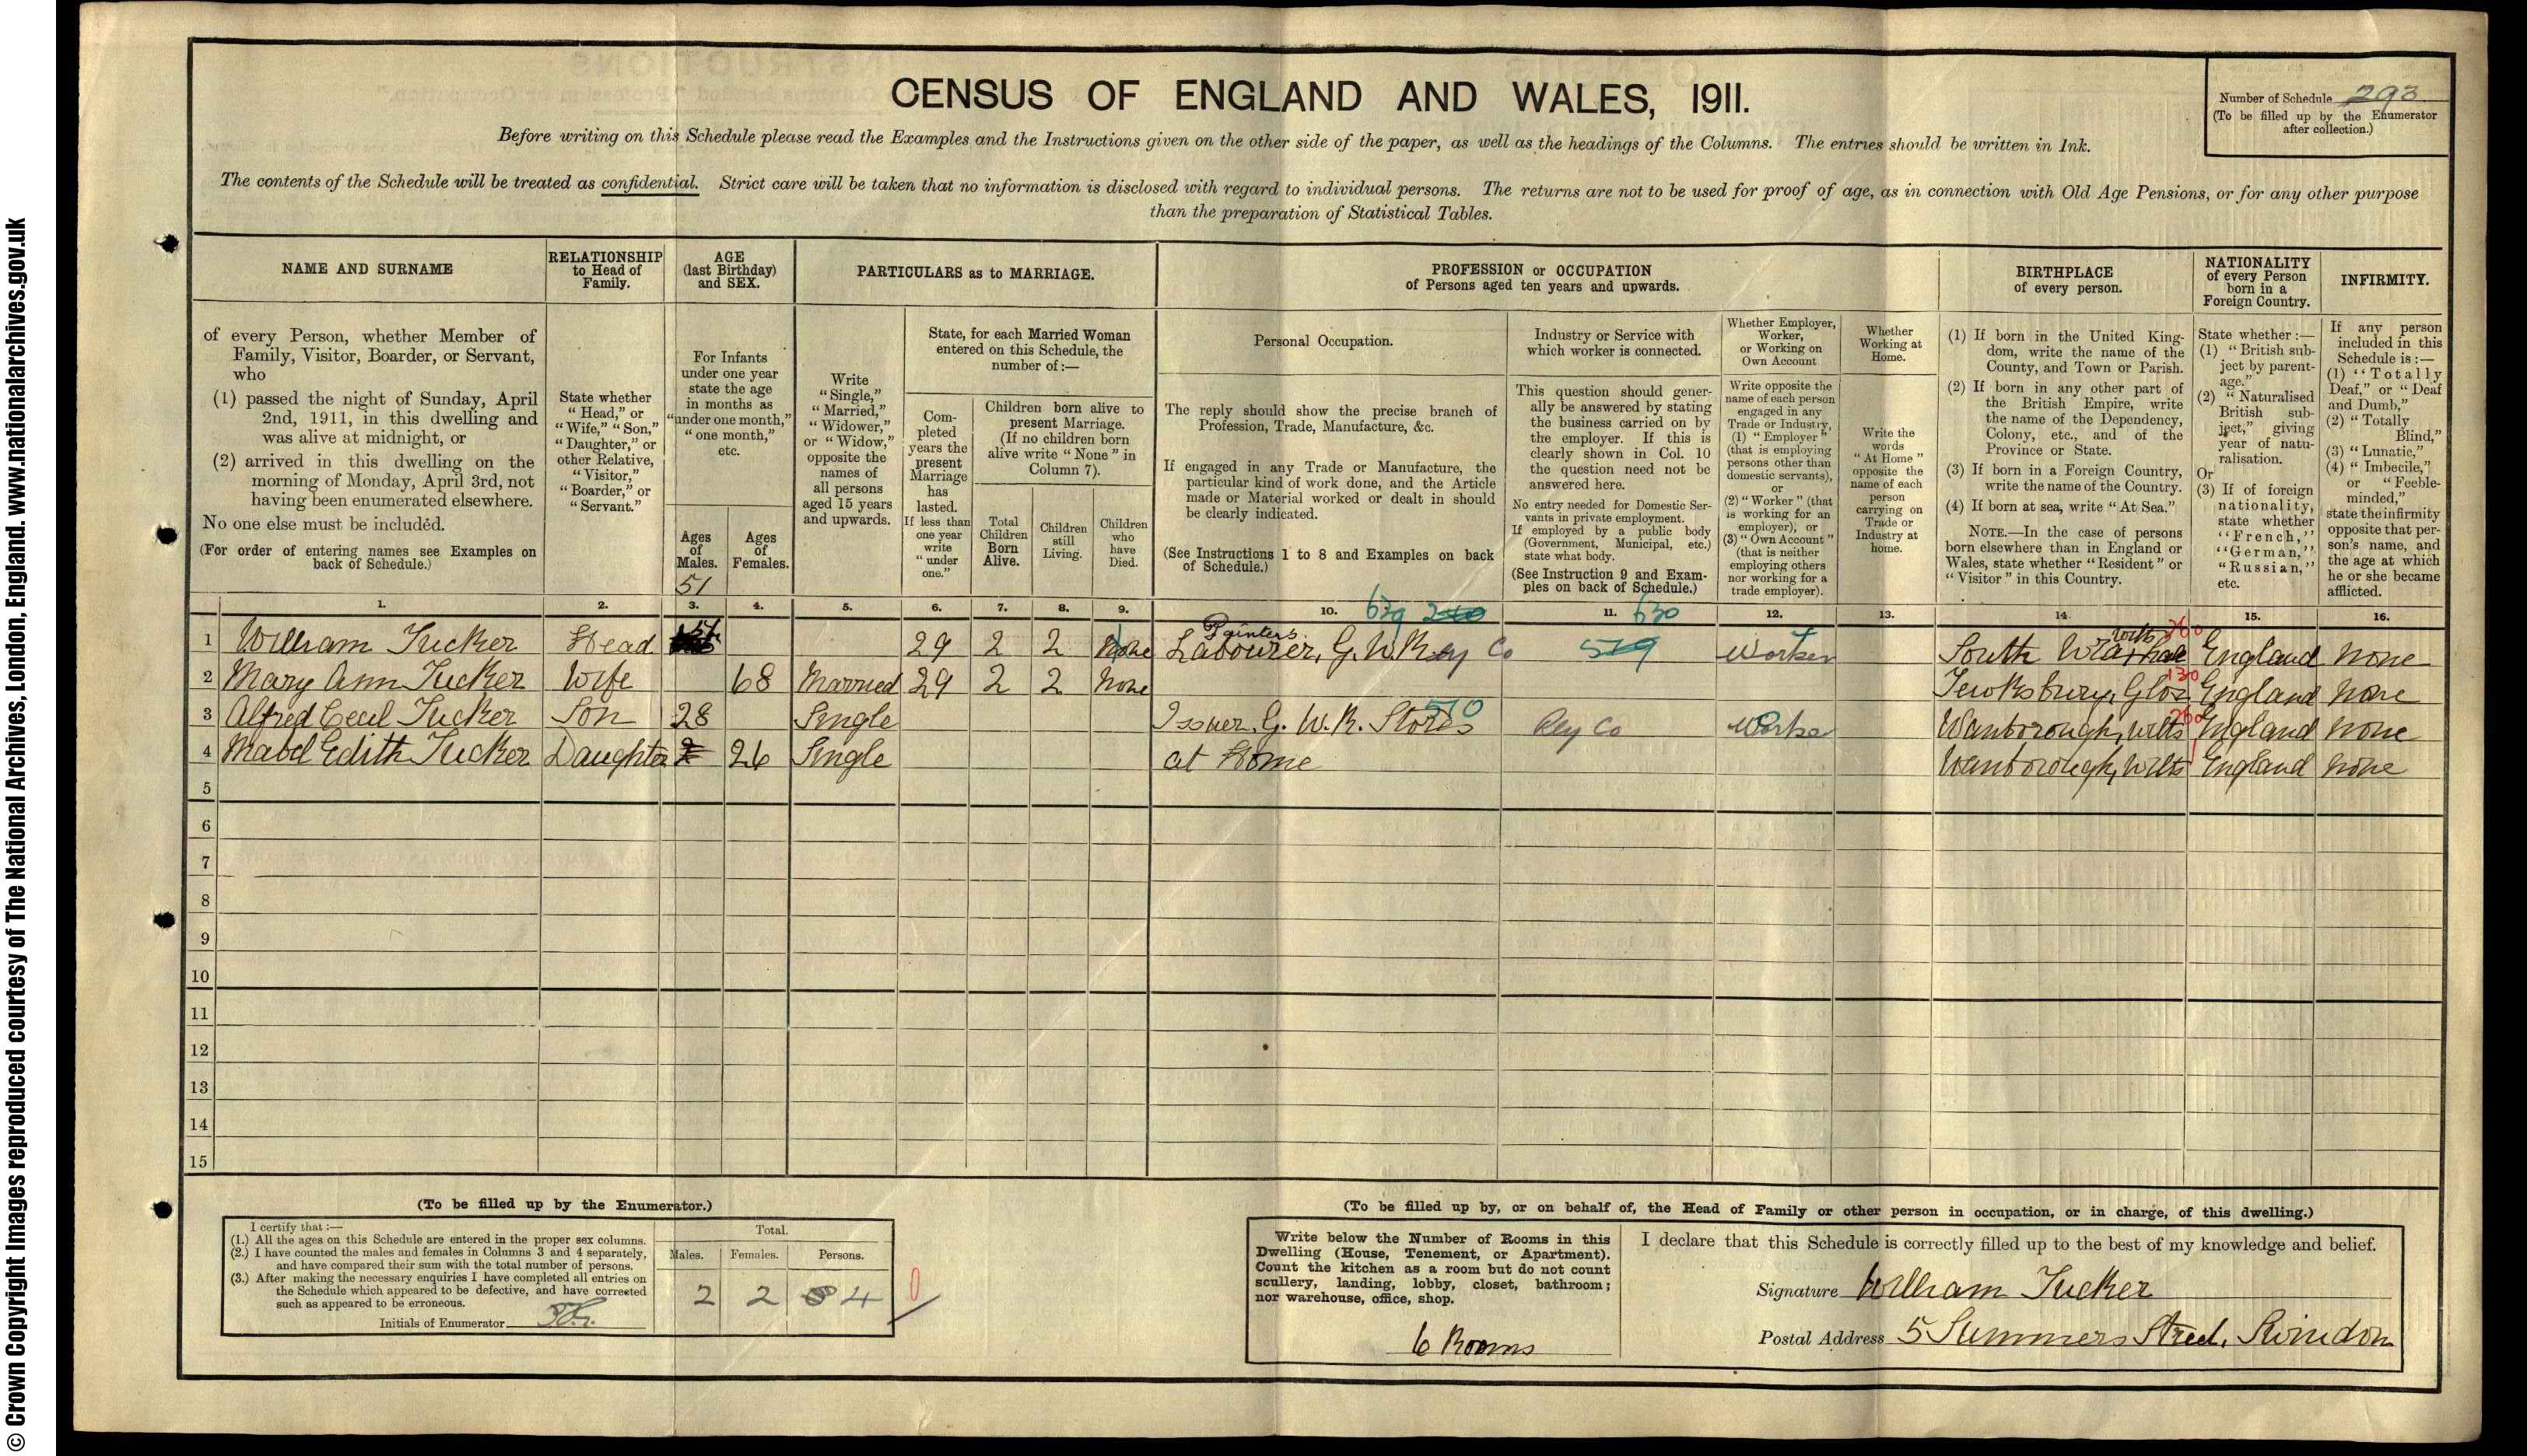 © Crown Copyright Images reproduced courtesy of The National Archives, London, England. www.nationalarchives.gov.uk
CENSUS OF ENGLAND AND WALES, 1911.
Number of Schedule 293
(To be filled up by the Enumerator
after collection.)
Before writing on this Schedule please read the Examples and the Instructions given on the other side of the paper, as well as the headings of the Columns. The entries should be written in Ink.
The contents of the Schedule will be treated as confidential. Strict care will be taken that no information is disclosed with regard to individual persons. The returns are not to be used for proof of age, as in connection with Old Age Pensions, or for any other purpose
than the preparation of Statistical Tables.
NAME AND SURNAME
of every Person, whether Member of
Family, Visitor, Boarder, or Servant,
who
(1) passed the night of Sunday, April
2nd, 1911, in this dwelling and
was alive at midnight, or
(2) arrived in this dwelling on the
morning of Monday, April 3rd, not
having been enumerated elsewhere.
No one else must be included.
(For order of entering names see Examples on
back of Schedule.)
RELATIONSHIP
to Head of
Family.
State whether
"Head," or
"Wife," "Son,"
"Daughter," or
other Relative,
"Visitor,"
"Boarder," or
"Servant."
AGE
(last Birthday)
and SEX.
For Infants
under one year
state the age
in months as
"under one month,"
"one month,"
etc.
Ages
of
Males.
51
Ages
of
Females.
PARTICULARS as to MARRIAGE.
Write
"Single,"
"Married,"
"Widower,"
or "Widow,"
opposite the
names of
all persons
aged 15 years
and upwards.
State, for each Married Woman
entered on this Schedule, the
number of:—
Com-
pleted
years the
present
Marriage
has
lasted.
If less than
one year
write
"under
one."
Children born alive to
present Marriage.
(If no children born
alive write "None" in
Column 7).
Total
Children
Born
Alive.
Children
still
Living.
Children
who
have
Died.
PROFESSION or OCCUPATION
of Persons aged ten years and upwards.
Personal Occupation.
The reply should show the precise branch of
Profession, Trade, Manufacture, &c.
If engaged in any Trade or Manufacture, the
particular kind of work done, and the Article
made or Material worked or dealt in should
be clearly indicated.
(See Instructions 1 to 8 and Examples on back
of Schedule.)
Industry or Service with
which worker is connected.
This question should gener-
ally be answered by stating
the business carried on by
the employer. If this is
clearly shown in Col. 10
the question need not be
answered here.
No entry needed for Domestic Ser-
vants in private employment.
If employed by a public body
(Government, Municipal, etc.)
state what body.
(See Instruction 9 and Exam-
ples on back of Schedule.)
Whether Employer,
Worker,
or Working on
Own Account
Write opposite the
name of each person
engaged in any
Trade or Industry,
(1) "Employer"
(that is employing
persons other than
domestic servants),
or
(2) "Worker" (that
is working for an
employer), or
(3) "Own Account"
(that is neither
employing others
nor working for a
trade employer).
Whether
Working at
Home.
Write the
words
"At Home"
opposite the
name of each
person
carrying on
Trade or
Industry at
home.
BIRTHPLACE
of every person.
(1) If born in the United King-
dom, write the name of the
County, and Town or Parish.
(2) If born in any other part of
the British Empire, write
the name of the Dependency,
Colony, etc., and of the
Province or State.
(3) If born in a Foreign Country,
write the name of the Country.
(4) If born at sea, write "At Sea."
NOTE.—In the case of persons
born elsewhere than in England or
Wales, state whether "Resident" or
"Visitor" in this Country.
NATIONALITY
of every Person
born in a
Foreign Country.
State whether :—
(1) "British sub-
ject by parent-
age."
(2) "Naturalised
British sub-
ject," giving
year of natu-
ralisation.
Or
(3) If of foreign
nationality,
state whether
"French,"
"German,"
"Russian,"
etc.
INFIRMITY.
If any person
included in this
Schedule is :—
(1) "Totally
Deaf," or "Deaf
and Dumb,"
(2) "Totally
Blind,"
(3) "Lunatic,"
(4) "Imbecile,"
or "Feeble-
minded,"
state the infirmity
opposite that per-
son's name, and
the age at which
he or she became
afflicted.
1. 2. 3. 4. 5. 6. 7. 8. 9. 10. 639 11. 630 12. 13. 14. 15. 16.
Painters
1 William Tucker Head 29 2 2 None Labourer, G.W.Rey Co 519 Worker South England None
2 Mary Ann Tucker Wife 68 Married 29 2 2 None Tewksbury, Glos 130 England None
3 Alfred Cecil Tucker Son 28 Single Issuer G.W.R. Stores 510 Rly Co Worker Wanborough, Wilts 260 England None
4 Mabel Edith Tucker Daughter 26 Single at Home Wanborough, Wilts England None
5
6
7
8
9
10
11
12
13
14
15
(To be filled up by the Enumerator.)
I certify that :—
(1.) All the ages on this Schedule are entered in the proper sex columns.
(2.) I have counted the males and females in Columns 3 and 4 separately,
and have compared their sum with the total number of persons.
(3.) After making the necessary enquiries I have completed all entries on
the Schedule which appeared to be defective, and have corrected
such as appeared to be erroneous.
Initials of Enumerator
Total.
Males. Females. Persons.
2 2 4
0
(To be filled up by, or on behalf of, the Head of Family or other person in occupation, or in charge, of this dwelling.)
Write below the Number of Rooms in this
Dwelling (House, Tenement, or Apartment).
Count the kitchen as a room but do not count
scullery, landing, lobby, closet, bathroom;
nor warehouse, office, shop.
6 Rooms
I declare that this Schedule is correctly filled up to the best of my knowledge and belief.
Signature William Tucker
Postal Address 5 Summers Street, Swindon